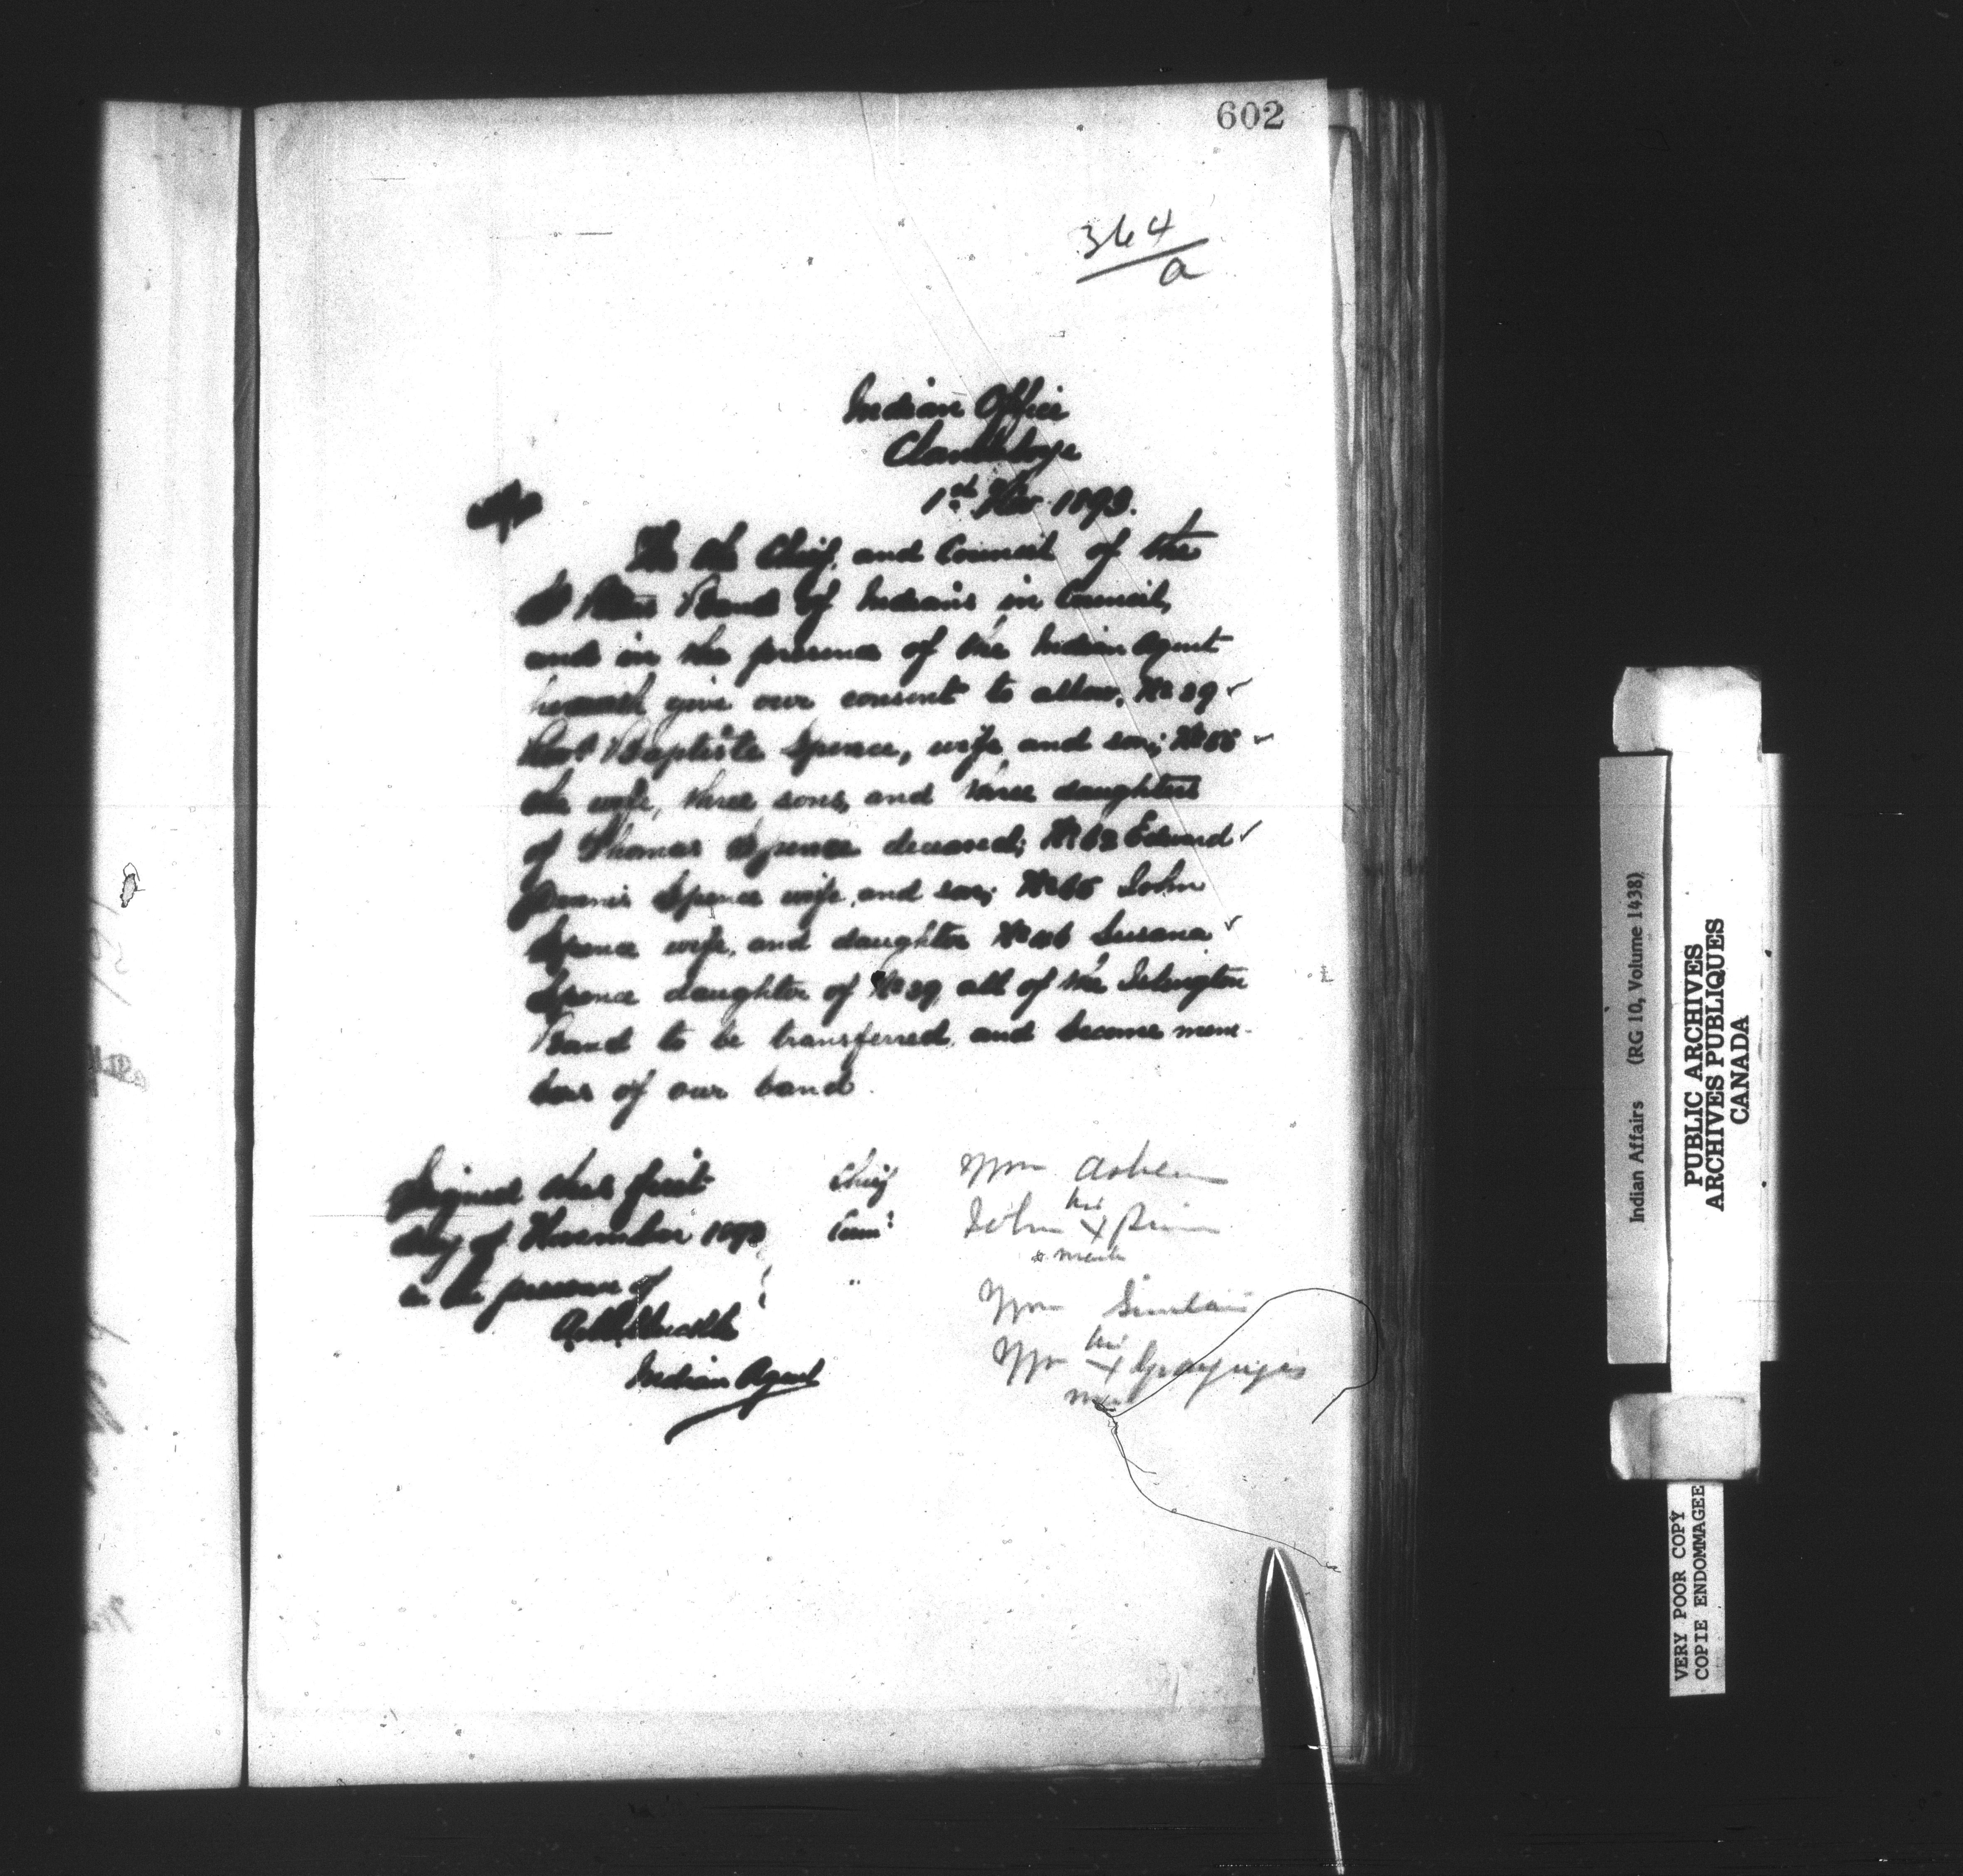 602
364/a
Indian Office
Clandeboye
1st Nov 1893.
We the Chief, and Council of the
St Peters Band of Indians in Council,
and in the presence of the Indian Agent
herewith give our consent to allow, No 29
Baptiste Spence, wife and son; No
the wife, three sons, and three daughters
of Thomas Spence deceased; No 62 Edward
Spence wife, and son; No John
Spence wife, and daughter No Susana
Spence daughter of No 29, all of the Islington
Band to be transferred, and become mem-
bers of our band.
Signed this first
day of November 1893
in the presence of
Indian Agent
Chief Wm Asham
Coun: John his x
mark
" Wm Sinclair
Wm his x
Indian Affairs (RG 10, Volume 1438)
PUBLIC ARCHIVES
ARCHIVES PUBLIQUES
CANADA
VERY POOR COPY
COPIE ENDOMMAGEE